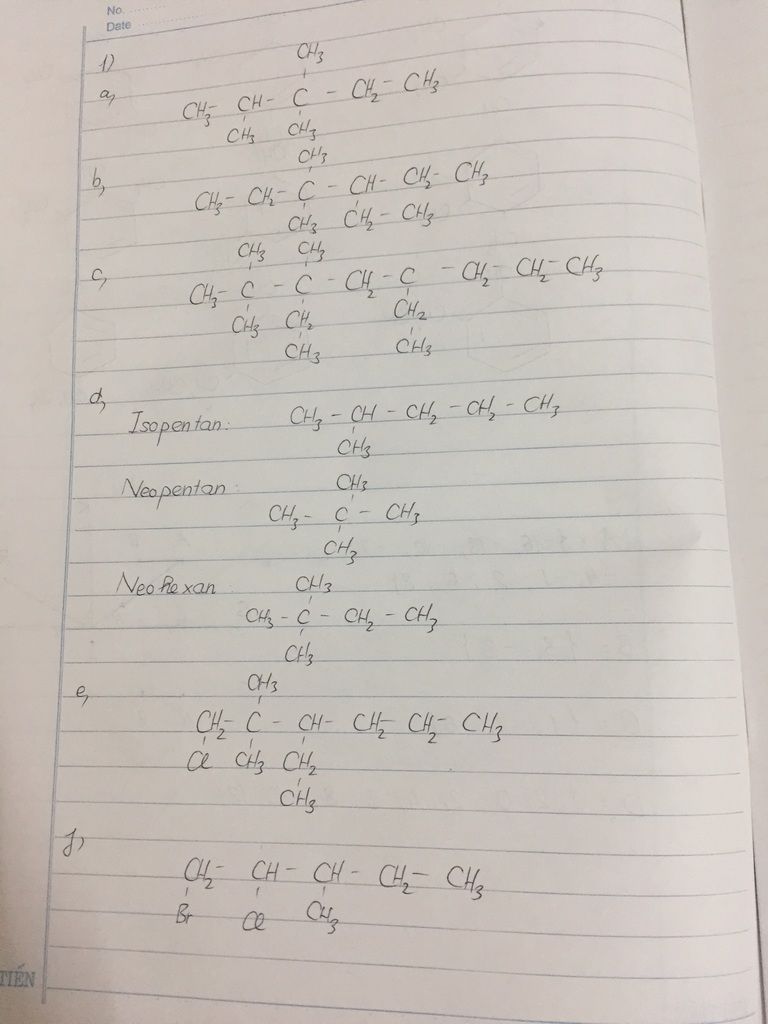 No.
Date
1)
CH3
a, CH3 - CH - C - CH2 - CH3
CH3 CH3
CH3
b, CH3 - CH2 - C - CH - CH2 - CH3
CH3 CH2 - CH3
CH3 CH3
c, CH3 - C - C - CH2 - C - CH2 - CH2 - CH3
CH3 CH2 CH2
CH3 CH3
d,
Isopentan: CH3 - CH - CH2 - CH2 - CH3
CH3
Neopentan: CH3
CH3 - C - CH3
CH3
Neohexan CH3
CH3 - C - CH2 - CH3
CH3
e, CH3
CH2 - C - CH - CH2 - CH2 - CH3
Cl CH3 CH2
CH3
f,
CH2 - CH - CH - CH2 - CH3
Br Cl CH3
TIẾN